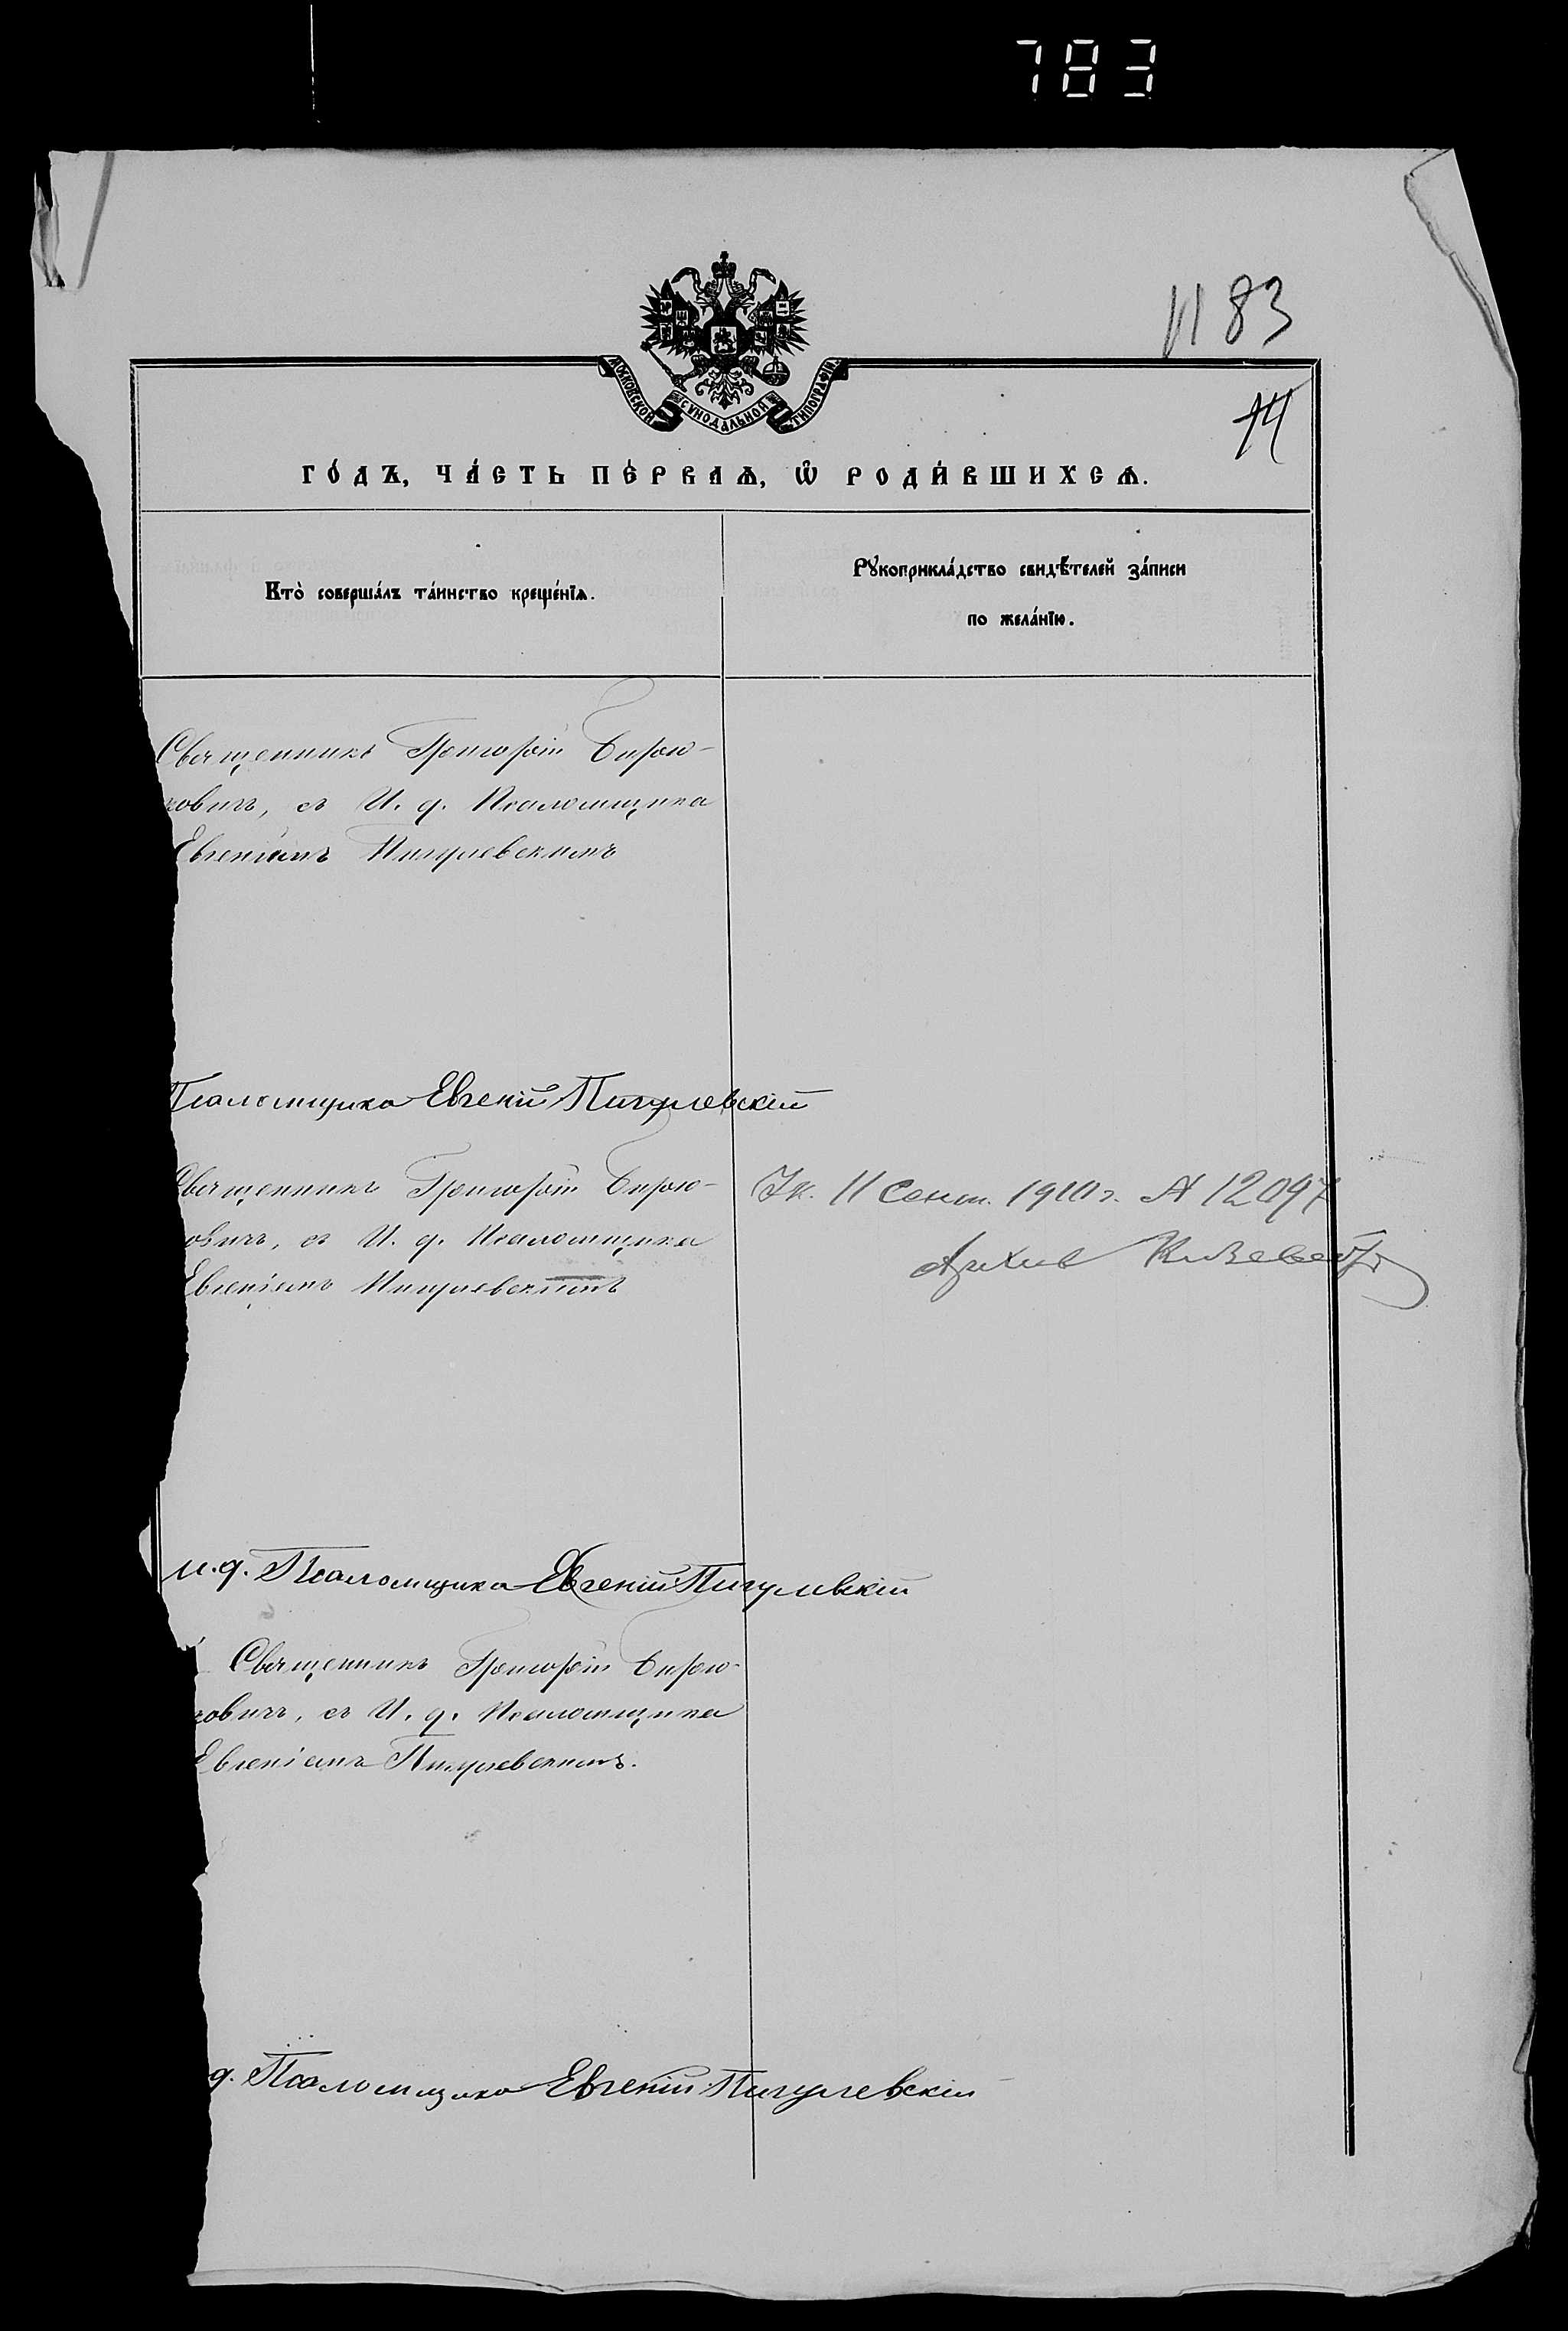 783
1183
14
МОСКОВСКОЙ СУНОДАЛЬНОЙ ТИПОГРАФІИ
ГО́ДЪ, ЧА́СТЬ ПЕ́РВАѦ, Ѽ РОДИ́ВШИХСѦ.
Кто̀ соверша́лъ та́инство креще́нїѧ.
Рꙋкоприкла́дство свидѣ́телей за́писи
по жела́нїю.
Священникъ Григорій Бирю-
ковичъ, съ И. д. Псаломщика
Евгеніемъ Пигулевскимъ
Псаломщика Евгеній Пигулевскій
Священникъ Григорій Бирю-
овичъ, съ И. д. Псаломщика
Евгеніемъ Пигулевскимъ
11 Сент. 1910 г. № 12097
и. д. Псаломщика Евгеній Пигулевскій
Священникъ Григорій Бирю-
ковичъ, съ И. д. Псаломщика
Евгеніемъ Пигулевскимъ.
д. Псаломщика Евгеній Пигулевскій